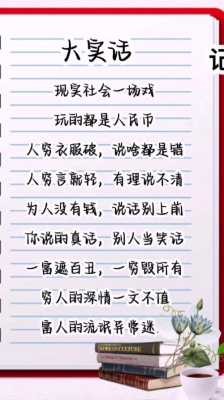 大实话
记
现实社会一场戏
玩的都是人民币
人穷衣服破，说啥都是错
人穷言就轻，有理说不清
为人没有钱，说话别上前
你说的真话，别人当笑话
一富遮百丑，一穷毁所有
穷人的深情一文不值
富人的流氓异常迷
KOREAN CULTURE